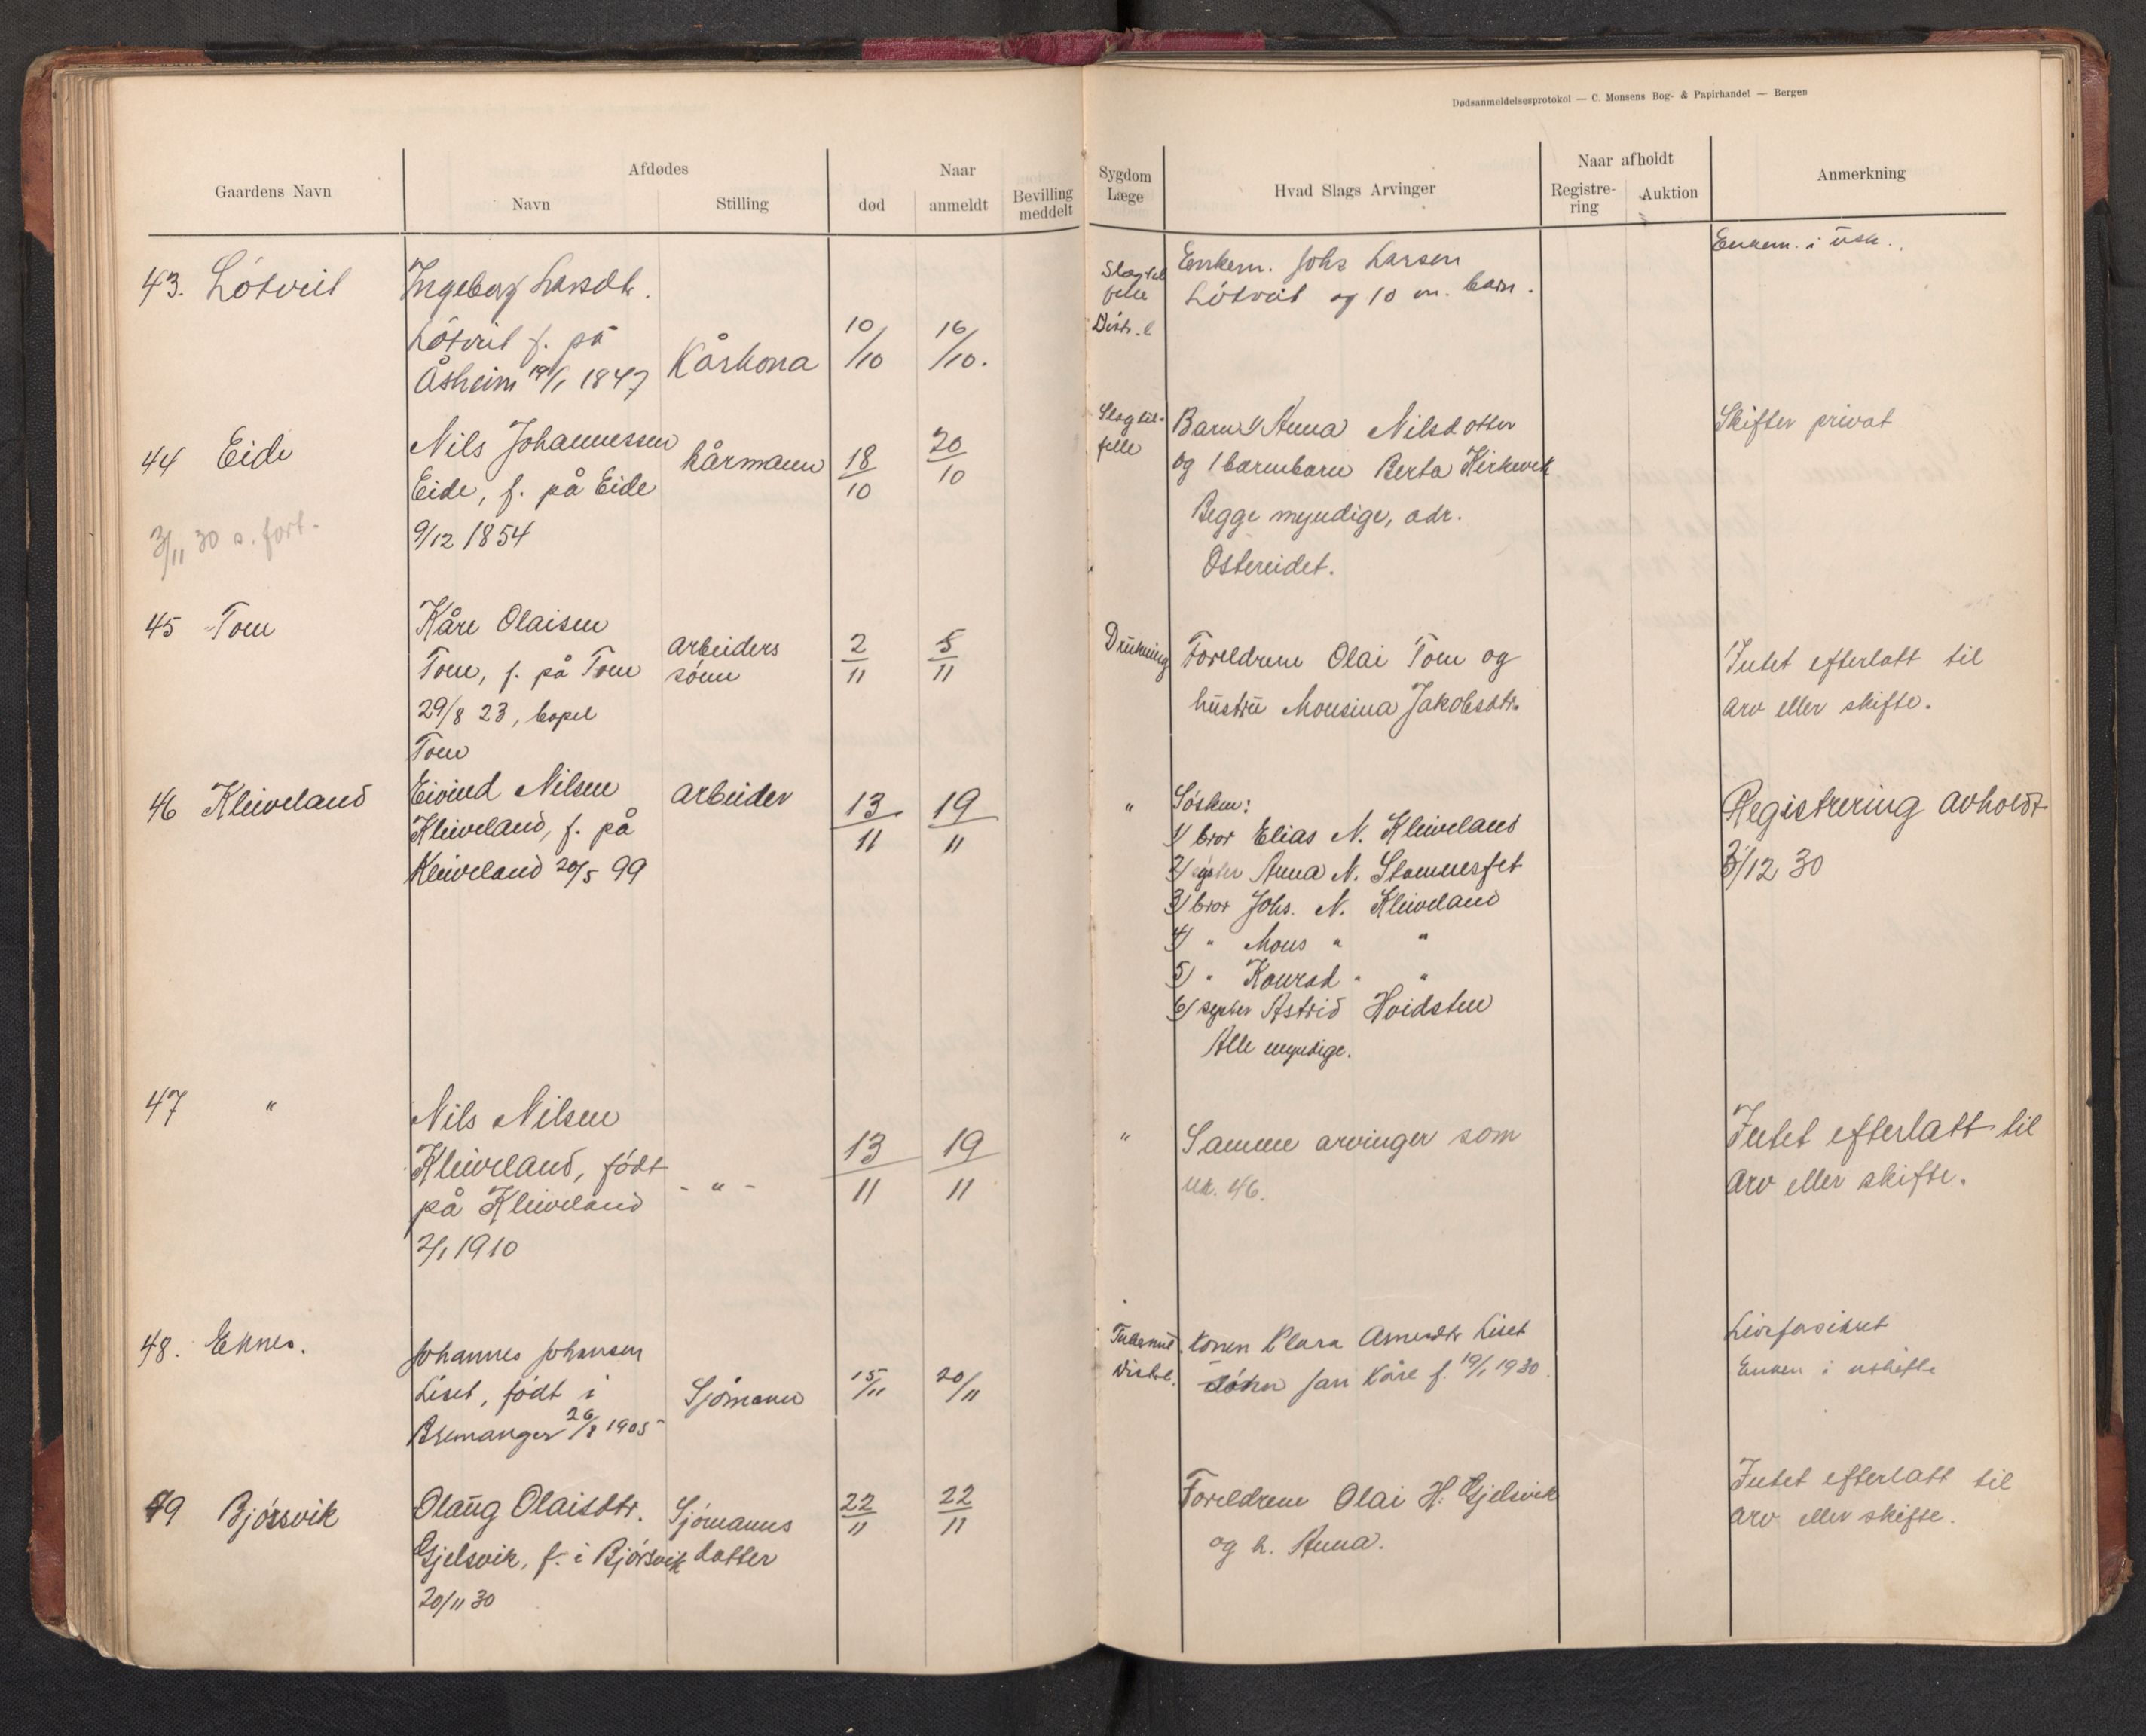 Dødsanmeldelsesprotokol — C. Monsens Bog- & Papirhandel — Bergen
Gaardens Navn
Afdødes
Navn
Stilling
Naar
død
anmeldt
Bevilling
meddelt
Sygdom
Læge
Hvad Slags Arvinger
Naar afholdt
Registre-
ring
Auktion
Anmerkning
43. Lótveit
Ingeborg Larsdtr.
Lótveit f. på
Åsheim 19/1 1847
Kårkona
10/10
16/10.
Slagtil
felle
Distr.l
Enkem. Johs Larsen
Lótveit og 10 m. barn.
Enkem. i usk.
44 Eide
3/11 30 s. fort.
Nils Johannessen
Eide, f. på Eide
9/12 1854
kårmann
18/10
20/10
Slagtil-
felle
Barn 1/ Anna Nilsdotter
og 1 barnebarn Berta Kirkevik
Begge myndige, adr.
Ostereidet.
Skifter privat
45 Tom
Kåre Olaisen
Tom, f. på Tom
29/8 23, bopel
Tom
arbeiders
sónn
2/11
5/11
Drukning
Foreldrene Olai Tom og
hustru Monsina Jakobsdtr.
Intet efterlatt til
arv eller skifte.
46 Kleiveland
Eivind Nilsen
Kleiveland, f. på
Kleiveland 20/5 99
arbeider
13/11
19/11
"
Sósken:
1/ bror Elias N. Kleiveland
2/ syster Anna N. Stamneset
3/ bror Johs. N. Kleiveland
4/ " Mons " "
5/ " Konrad " "
6/ syster Astrid Hvidsten
Alle myndige.
Registrering avholdt
3/12 30
47 "
Nils Nilsen
Kleiveland, fódt
på Kleiveland
2/1 1910
- " -
13/11
19/11
"
Samme arvinger som
nr. 46.
Intet efterlatt til
arv eller skifte.
48. Eknes.
Johannes Johansen
Liset, fódt i
Bremanger 26/8 1905
Sjómann
15/11
20/11
Tuberkul.
Distr.l.
Konen Klara Arnesdtr Liset
Sónn Jan Kåre f. 19/1 1930.
Enken i uskifte
49 Bjórsvik
Olaug Olaisdtr.
Gjelsvik, f. i Bjórsvik
20/11 30
Sjómanns
datter
22/11
22/11
Foreldrene Olai H. Gjelsvik
og h. Anna.
Intet efterlatt til
arv eller skifte.